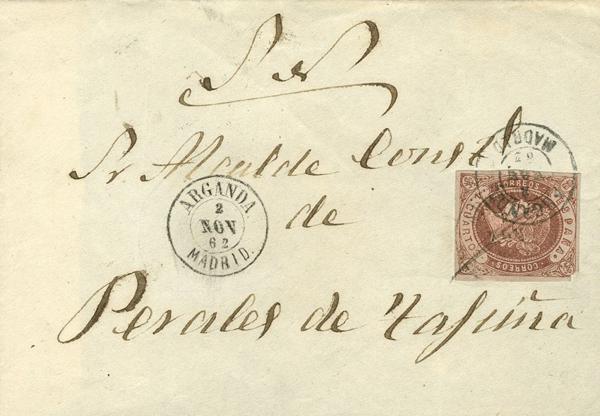 S. N.
Sr Alcalde Const.l
de
Perales de Tajuña
ARGANDA
2
NOV
62
MADRID.
MADRID
CORREOS
CORREOS